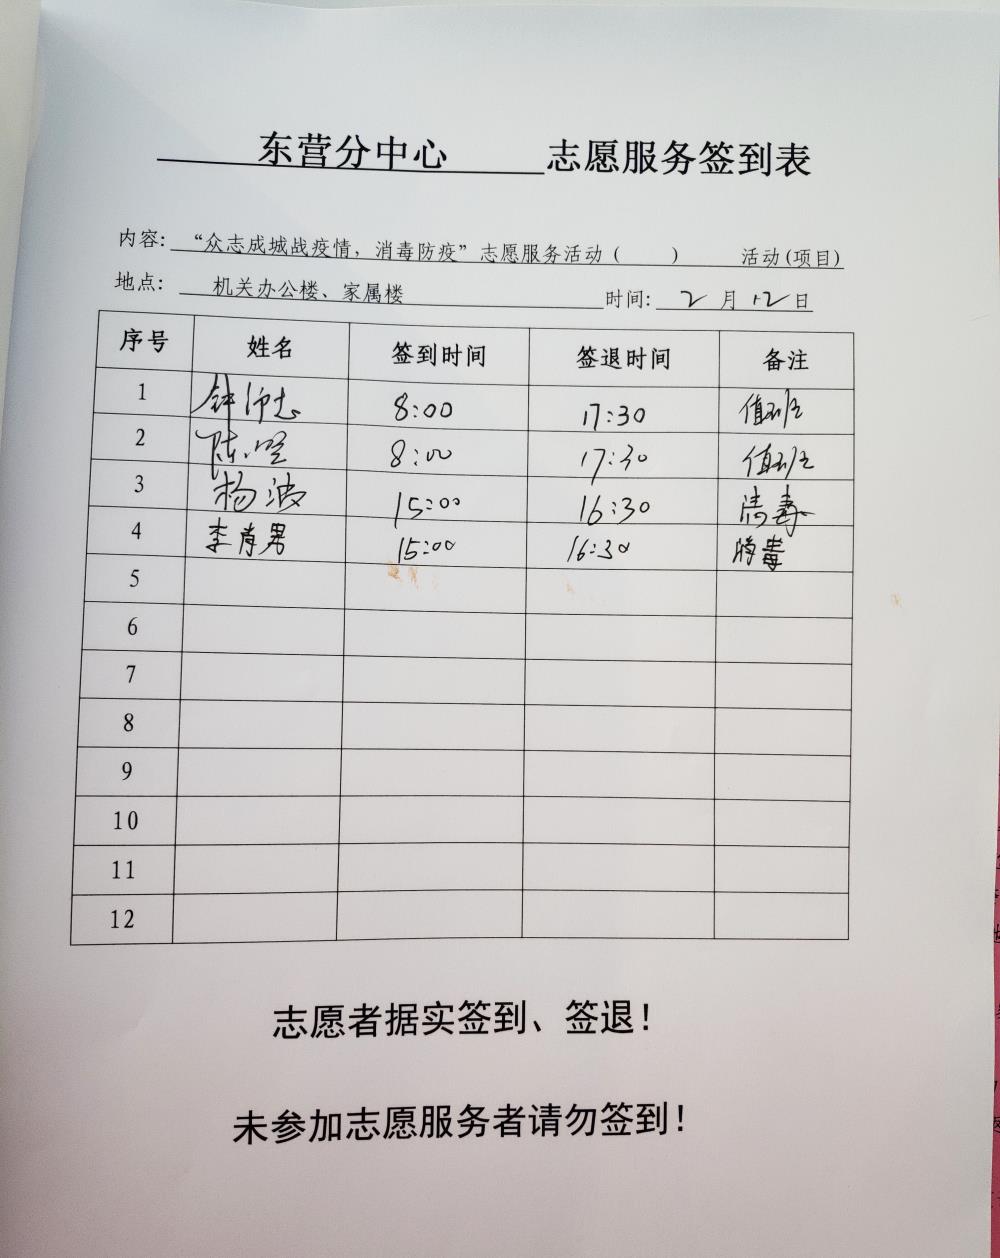 东营分中心 志愿服务签到表
内容: “众志成城战疫情，消毒防疫”志愿服务活动（ ） 活动(项目)
地点: 机关办公楼、家属楼 时间: 2 月 12 日
序号 姓名 签到时间 签退时间 备注
1 钟 志 8:00 17:30 值班
2 陈坚 8:00 17:30 值班
3 杨波 15:00 16:30 消毒
4 李肖男 15:00 16:30 消毒
5
6
7
8
9
10
11
12
志愿者据实签到、签退！
未参加志愿服务者请勿签到！